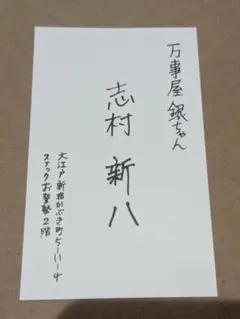 万事屋 銀ちゃん
志村 新八
大江戸新宿かぶき町5-1-4
スナックお登勢2階